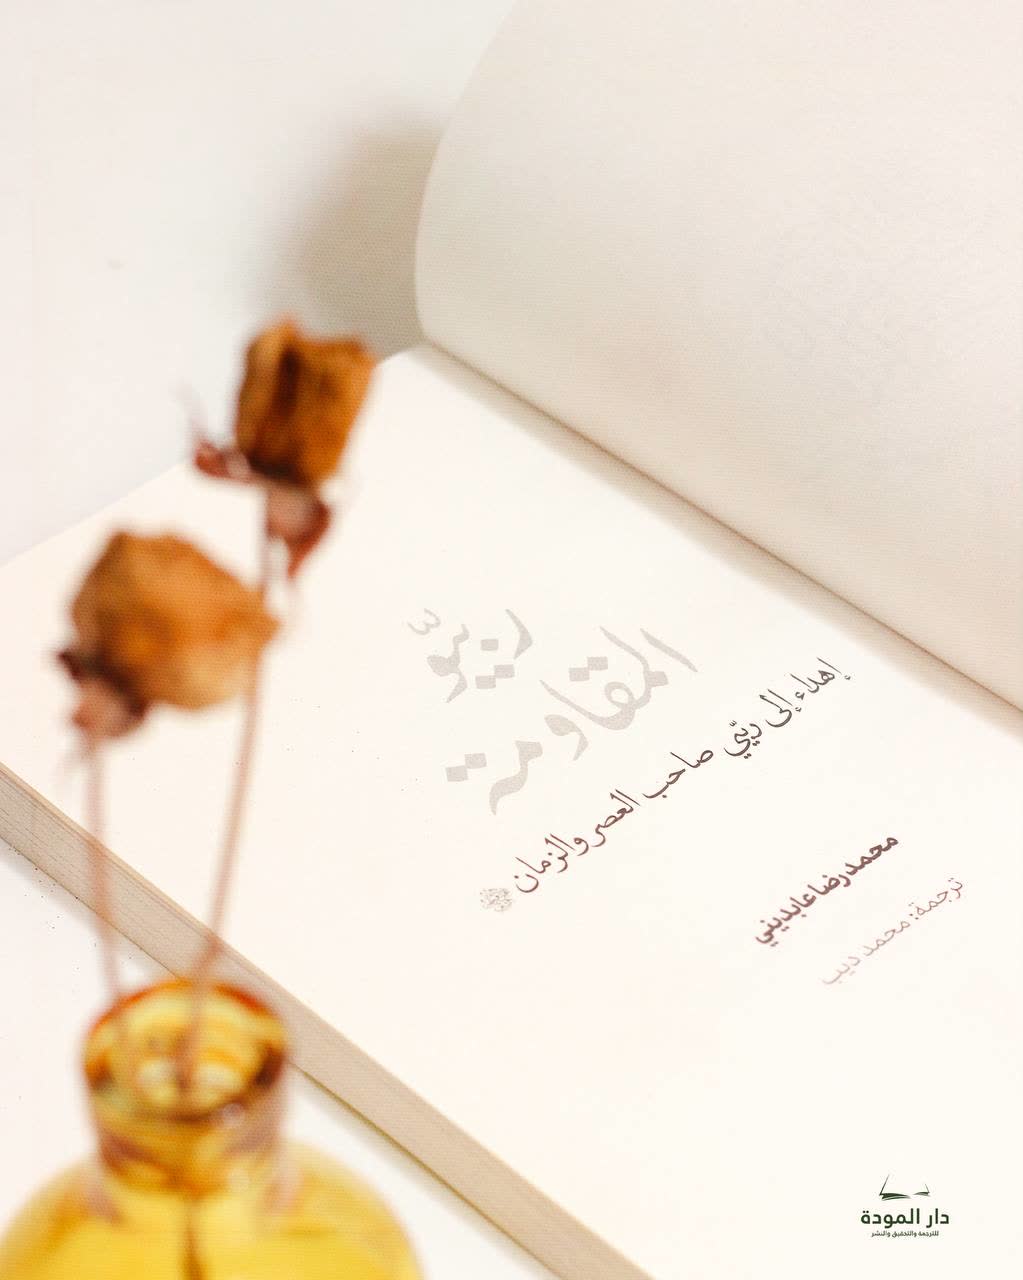 ربيّو
المقاومة
إهداء إلى صاحب العصر والزمان
محمد رضا عابديني
ترجمة: محمد ديب
دار المودة
للترجمة والتحقيق والنشر